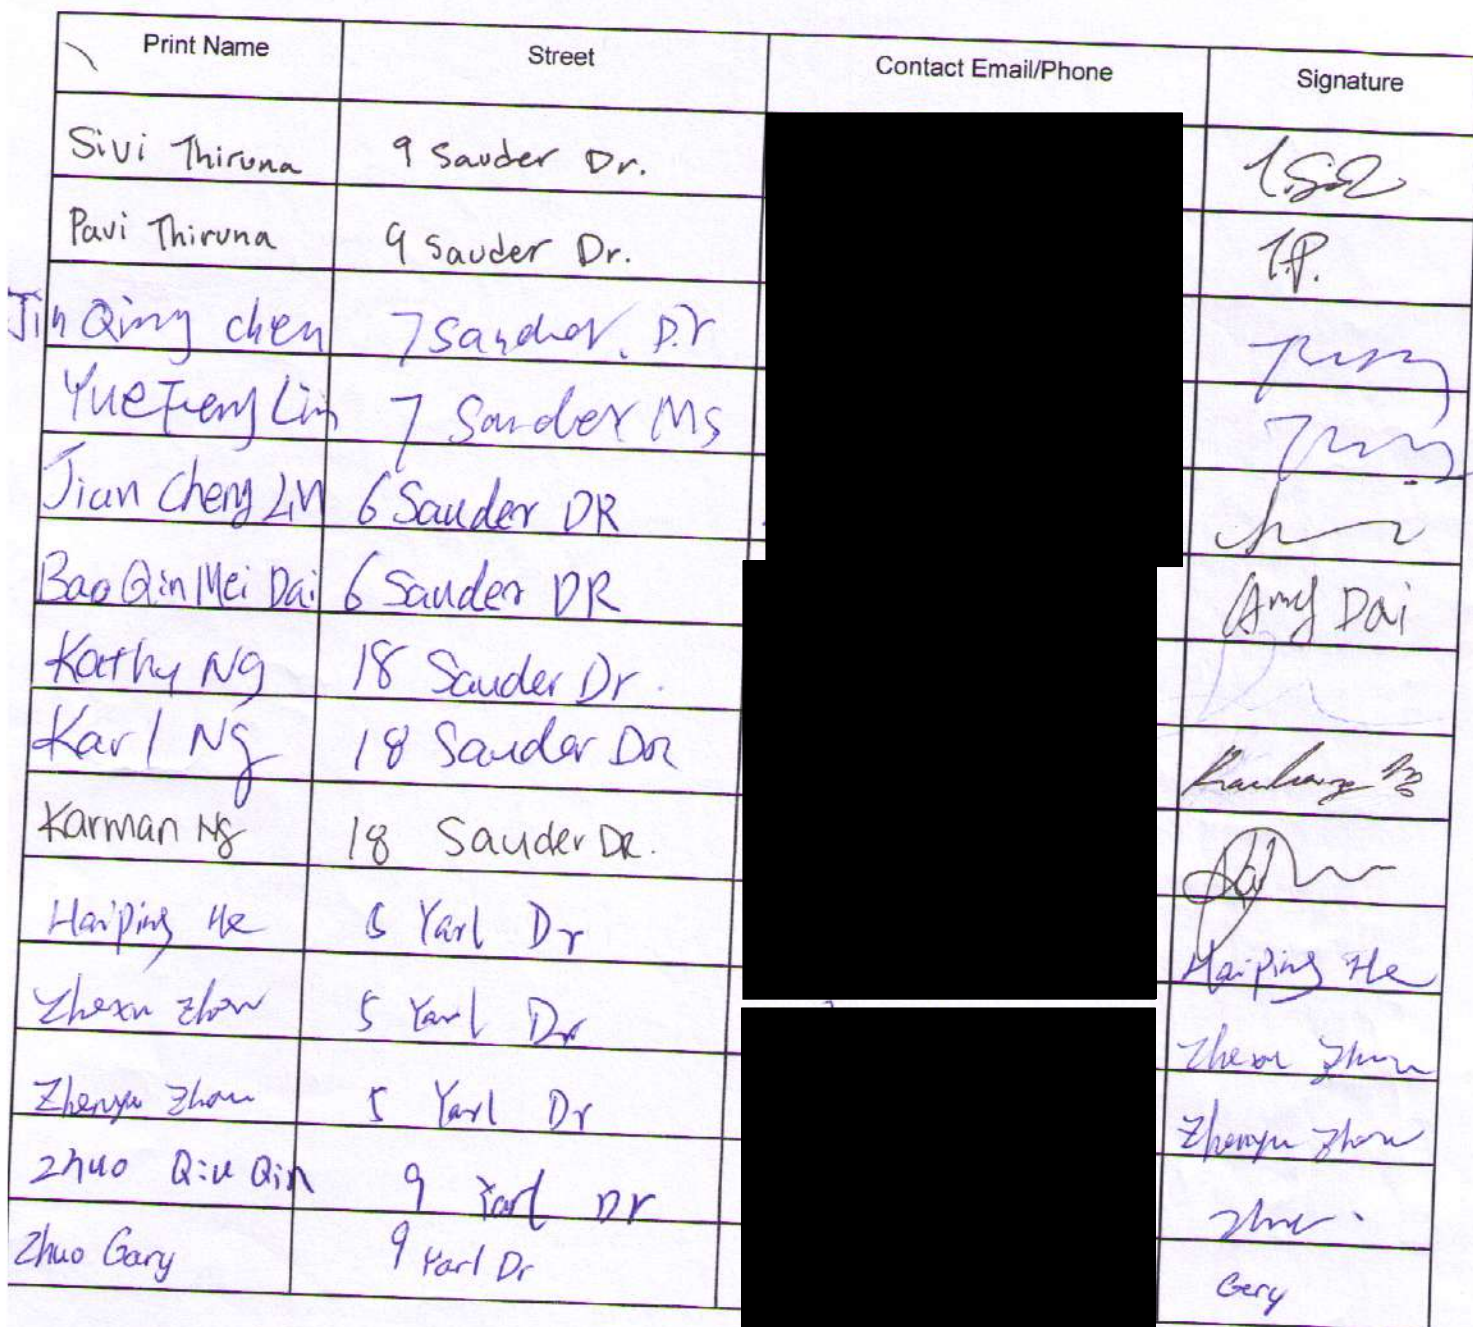 Print Name Street Contact Email/Phone Signature
Sivi Thiruna 9 Sauder Dr.
Pavi Thiruna 9 Sauder Dr. T.P.
Jin Qing chen 7 Sauder. Dr
Yue Feng Lin 7 Sauder Ms
Jian Cheng Lin 6 Sauder DR
Bao Qin Mei Dai 6 Sauder DR Amy Dai
Kathy Ng 18 Sauder Dr.
Karl Ng 18 Sauder DR
Karman Ng 18 Sauder DR.
Haiping He 5 Yarl Dr Haiping He
Zhexu Zhou 5 Yarl Dr Zhexu Zhou
Zhenyu Zhou 5 Yarl Dr Zhenyu Zhou
Zhuo Qiu Qin 9 Yarl Dr
Zhuo Gary 9 Yarl Dr Gery